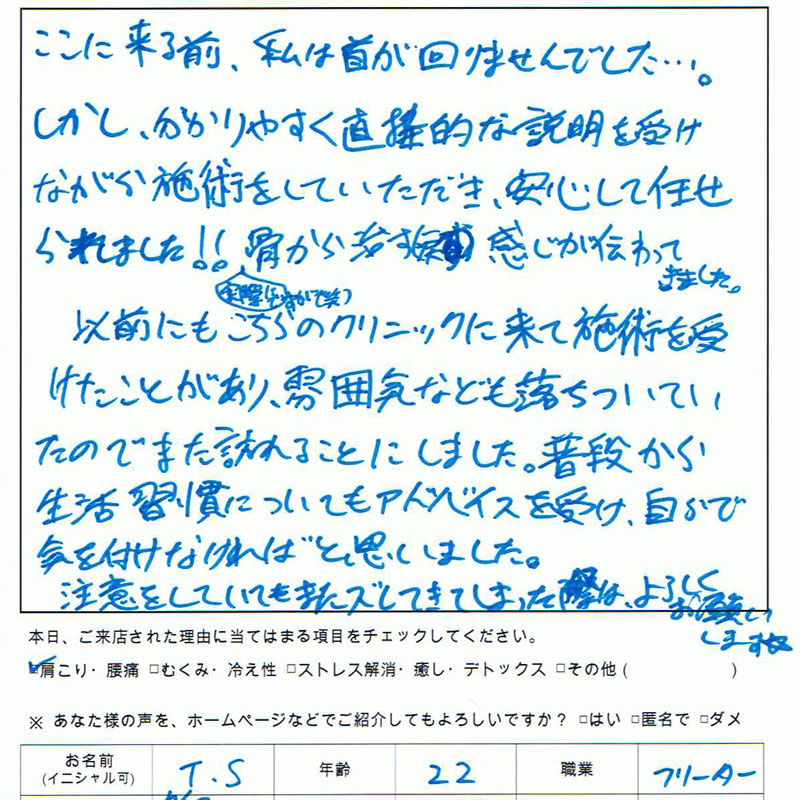 ここに来る前、私は首が回りませんでした…。
しかし、分かりやすく直接的な説明を受け
ながら施術をしていただき、安心して任せ
られました!! 骨から治す 感じが伝わって
きました。
(実際にですがで笑)
以前にもこちらのクリニックに来て施術を受
けたことがあり、雰囲気なども落ちついてい
たのでまた訪れることにしました。普段から
生活習慣についてもアドバイスを受け、自らで
気を付けなければと思いました。
注意をしていてもまたズレてきてしまった際は、よろしく
お願い
します
本日、ご来店された理由に当てはまる項目をチェックしてください。
☑肩こり・腰痛 □むくみ・冷え性 □ストレス解消・癒し・デトックス □その他 ( )
※ あなた様の声を、ホームページなどでご紹介してもよろしいですか？ □はい □匿名で □ダメ
お名前 T.S 年齢 22 職業 フリーター
(イニシャル可)